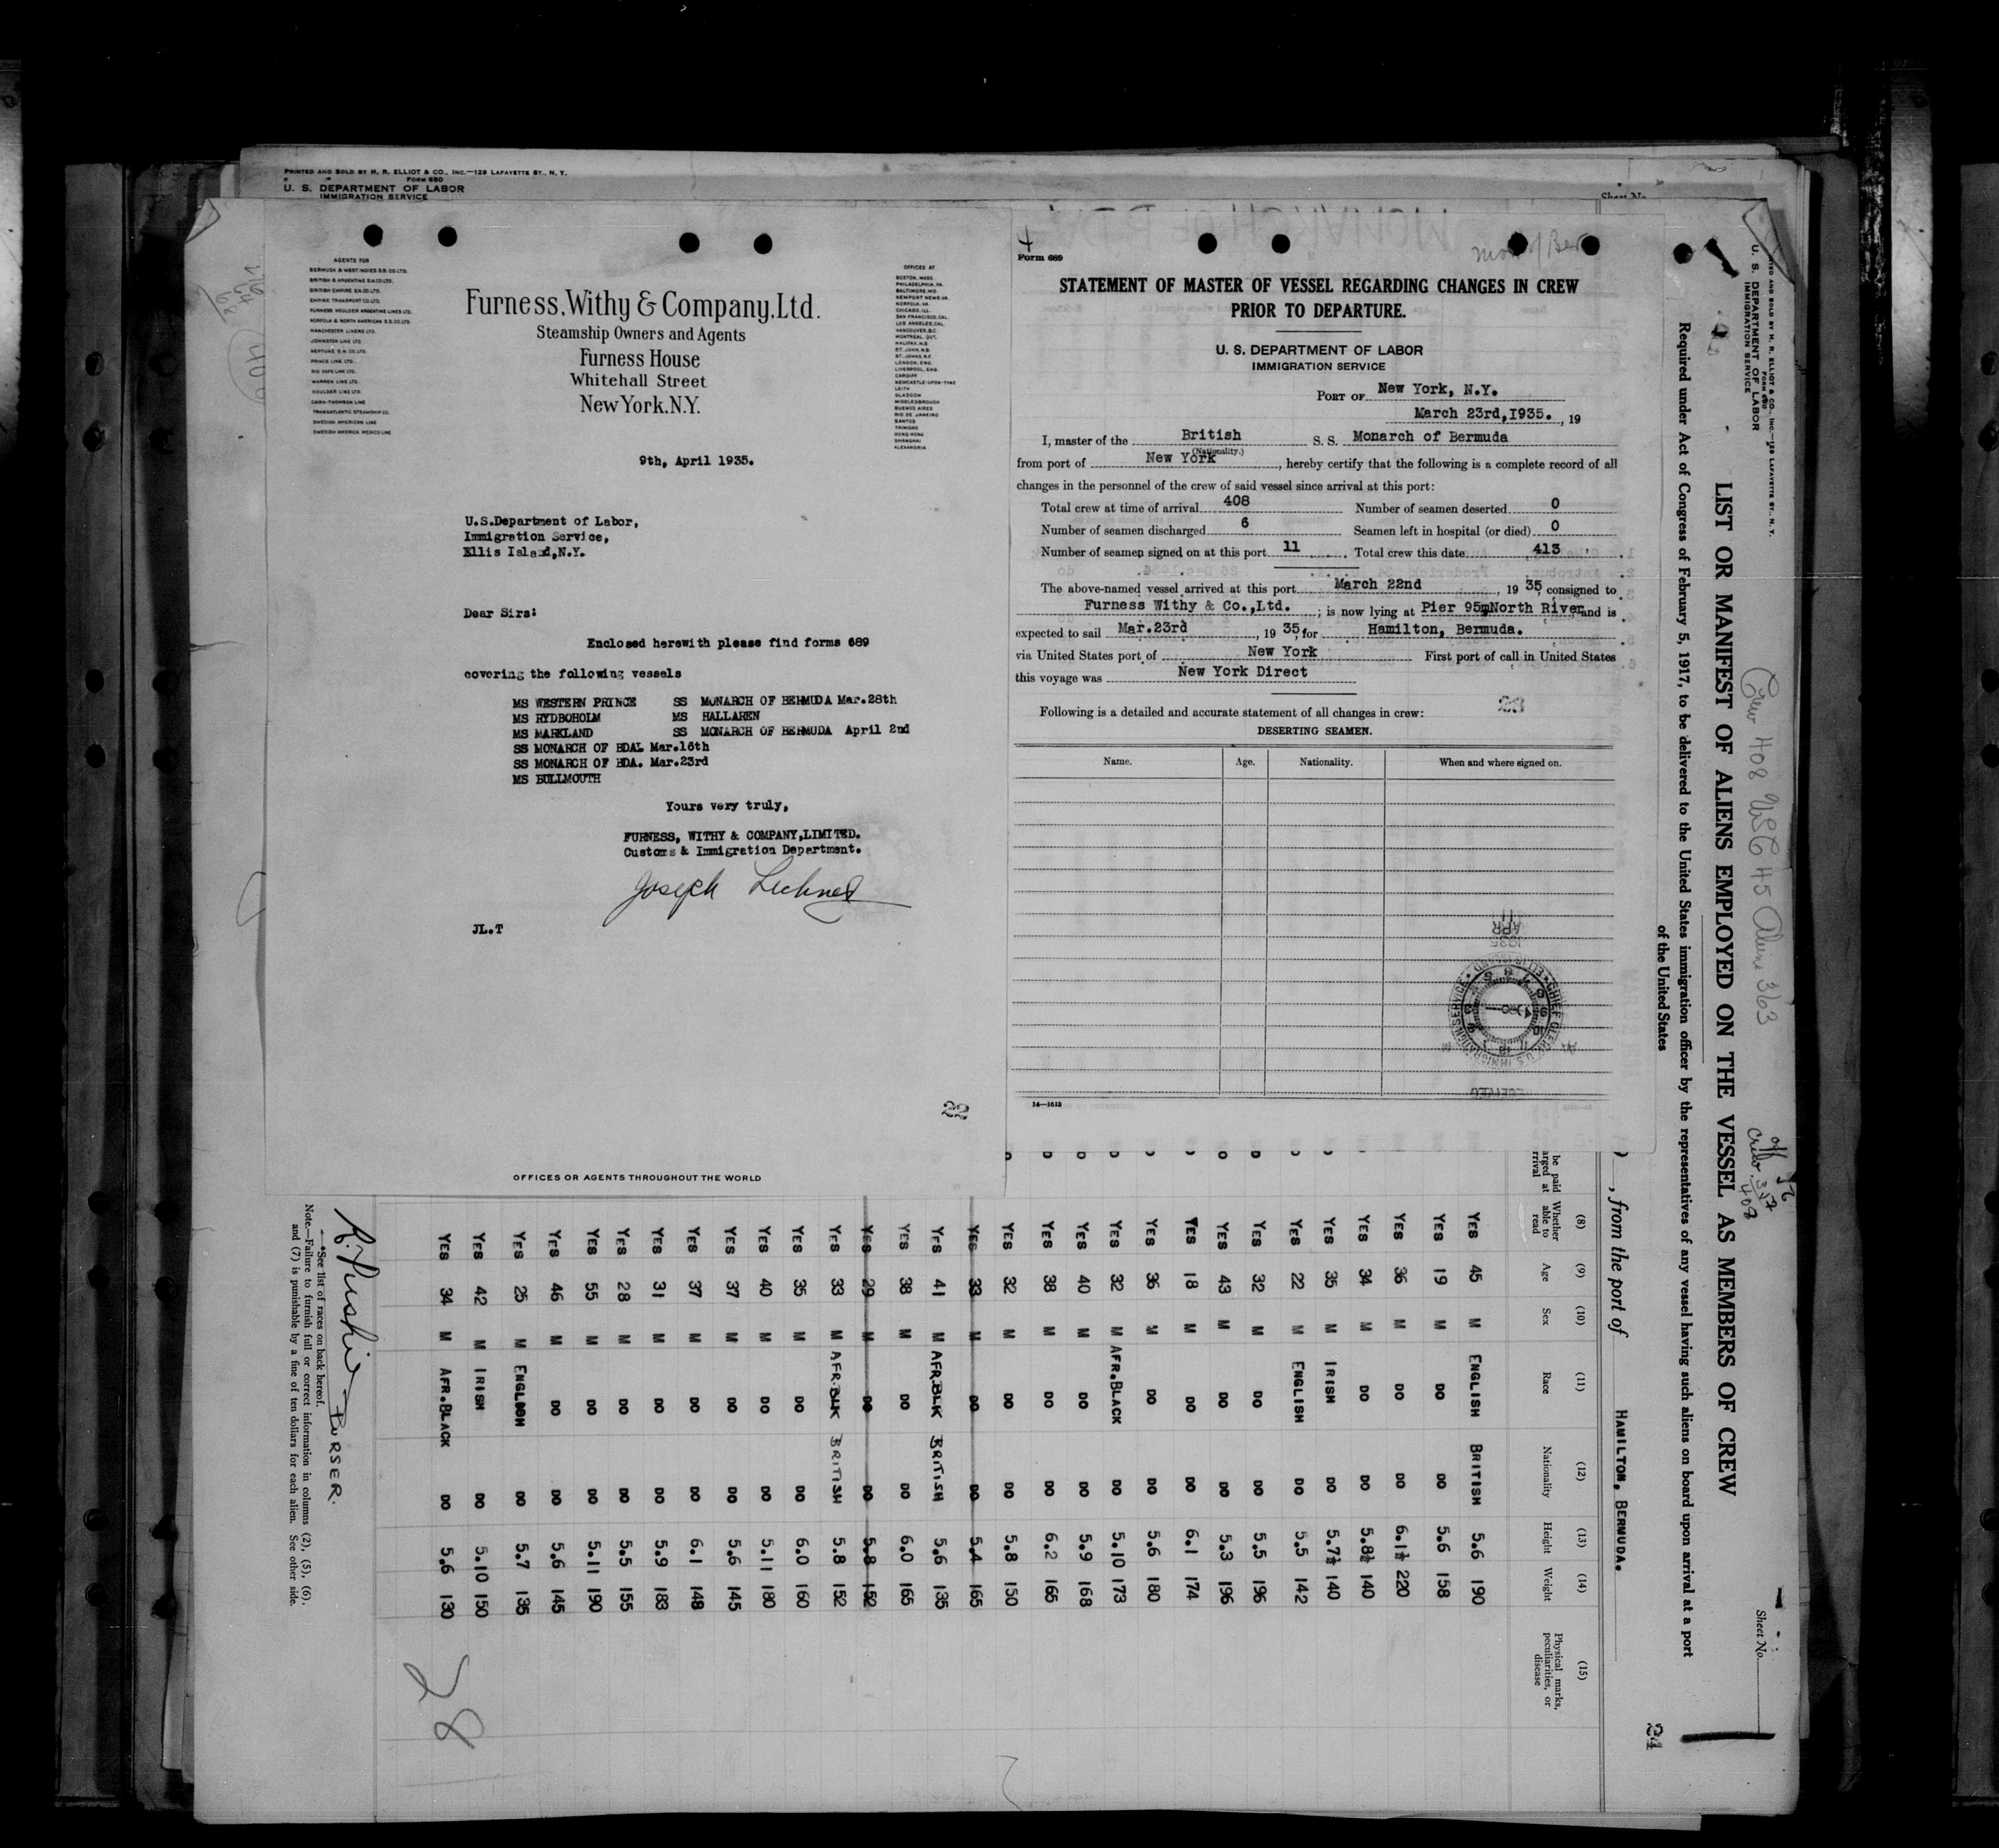 PRINTED AND SOLD BY H. R. ELLIOT & CO., INC.—129 LAFAYETTE ST., N. Y.
FORM 680
U. S. DEPARTMENT OF LABOR
IMMIGRATION SERVICE
Sheet No.
AGENTS FOR
BERMUDA & WEST INDIES S.S. CO. LTD.
BRITISH & ARGENTINE S.N. CO. LTD.
BRITISH EMPIRE S.N. CO. LTD.
EMPIRE TRANSPORT CO. LTD.
FURNESS HOULDER ARGENTINE LINES LTD.
NORFOLK & NORTH AMERICAN S.S. CO. LTD.
MANCHESTER LINERS LTD.
JOHNSTON LINE LTD.
NEPTUNE S.N. CO. LTD.
PRINCE LINE LTD.
RIO CAPE LINE LTD.
WARREN LINE LTD.
HOULDER LINE LTD.
CAIRN-THOMSON LINE
TRANSATLANTIC STEAMSHIP CO.
SWEDISH AMERICAN LINE
SWEDISH AMERICA MEXICO LINE
Furness, Withy & Company, Ltd.
Steamship Owners and Agents
Furness House
Whitehall Street
New York, N.Y.
OFFICES AT
BOSTON, MASS.
PHILADELPHIA, PA.
BALTIMORE, MD.
NEWPORT NEWS, VA.
NORFOLK, VA.
CHICAGO, ILL.
SAN FRANCISCO, CAL.
LOS ANGELES, CAL.
VANCOUVER, B.C.
MONTREAL, QUE.
HALIFAX, N.S.
ST. JOHN, N.B.
ST. JOHNS, N.F.
LONDON, ENG.
LIVERPOOL, ENG.
CARDIFF
NEWCASTLE-UPON-TYNE
LEITH
GLASGOW
MIDDLESBROUGH
BUENOS AIRES
RIO DE JANEIRO
SANTOS
TRINIDAD
HONG KONG
SHANGHAI
ALEXANDRIA
9th, April 1935.
U.S.Department of Labor,
Immigration Service,
Ellis Island,N.Y.
Dear Sirs:
Enclosed herewith please find forms 689
covering the following vessels
MS WESTERN PRINCE SS MONARCH OF BERMUDA Mar.28th
MS RYDBOHOLM MS HALLAREN
MS MARKLAND SS MONARCH OF BERMUDA April 2nd
SS MONARCH OF BDA. Mar.16th
SS MONARCH OF BDA. Mar.23rd
MS BULLMOUTH
Yours very truly,
FURNESS, WITHY & COMPANY,LIMITED.
Customs & Immigration Department.
Joseph Lechner
JL.T
22
OFFICES OR AGENTS THROUGHOUT THE WORLD
Form 689
STATEMENT OF MASTER OF VESSEL REGARDING CHANGES IN CREW
PRIOR TO DEPARTURE.
U. S. DEPARTMENT OF LABOR
IMMIGRATION SERVICE
PORT OF New York, N.Y.
March 23rd,1935. , 19
I, master of the British S. S. Monarch of Bermuda
(Nationality.)
from port of New York, hereby certify that the following is a complete record of all
changes in the personnel of the crew of said vessel since arrival at this port:
Total crew at time of arrival 408 Number of seamen deserted 0
Number of seamen discharged 6 Seamen left in hospital (or died) 0
Number of seamen signed on at this port 11 Total crew this date 413
The above-named vessel arrived at this port March 22nd, 19 35, consigned to
Furness Withy & Co.,Ltd. ; is now lying at Pier 95, North River and is
expected to sail Mar.23rd, 19 35, for Hamilton, Bermuda.
via United States port of New York First port of call in United States
this voyage was New York Direct
23
Following is a detailed and accurate statement of all changes in crew:
DESERTING SEAMEN.
Name. Age. Nationality. When and where signed on.
14—1613
U. S. DEPARTMENT OF LABOR
IMMIGRATION SERVICE
Sheet No.
LIST OR MANIFEST OF ALIENS EMPLOYED ON THE VESSEL AS MEMBERS OF CREW
Required under Act of Congress of February 5, 1917, to be delivered to the United States immigration officer by the representatives of any vessel having such aliens on board upon arrival at a port
of the United States
Crew 408 USC 45 Aliens 363
24
, from the port of HAMILTON, BERMUDA.
(8) (9) (10) (11) (12) (13) (14) (15)
Whether able to read Age Sex Race Nationality Height Weight Physical marks, peculiarities, or disease
YES 45 M ENGLISH BRITISH 5.6 190
YES 19 M DO DO 5.6 158
YES 36 M DO DO 6.1½ 220
YES 34 M DO DO 5.8½ 140
YES 35 M IRISH DO 5.7½ 140
YES 22 M ENGLISH DO 5.5 142
YES 32 M DO DO 5.5 196
YES 43 M DO DO 5.3 196
YES 18 M DO DO 6.1 174
YES 36 M DO DO 5.6 180
YES 32 M AFR.BLACK DO 5.10 173
YES 40 M DO DO 5.9 168
YES 38 M DO DO 6.2 165
YES 32 M DO DO 5.8 150
YES 33 M DO DO 5.4 165
YES 41 M AFR.BLK BRITISH 5.6 135
YES 38 M DO DO 6.0 165
YES 29 M DO DO 5.8 152
YES 33 M AFR.BLK BRITISH 5.8 152
YES 35 M DO DO 6.0 160
YES 40 M DO DO 5.11 180
YES 37 M DO DO 5.6 145
YES 37 M DO DO 6.1 148
YES 31 M DO DO 5.9 183
YES 28 M DO DO 5.5 155
YES 55 M DO DO 5.11 190
YES 46 M DO DO 5.6 145
YES 25 M ENGLISH DO 5.7 135
YES 42 M IRISH DO 5.10 150
YES 34 M AFR.BLACK DO 5.6 130
28
PURSER.
*See list of races on back hereof.
Note.—Failure to furnish full or correct information in columns (2), (5), (6),
and (7) is punishable by a fine of ten dollars for each alien. See other side.